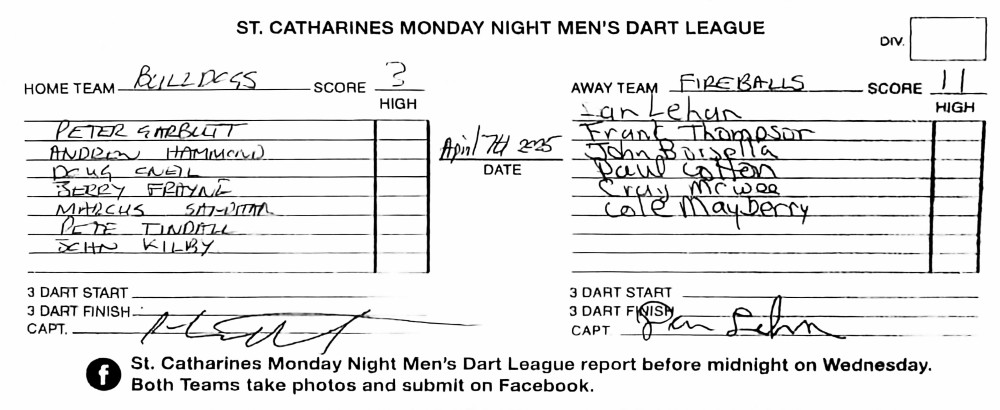 ST. CATHARINES MONDAY NIGHT MEN'S DART LEAGUE
DIV.
HOME TEAM BULLDOGS SCORE 3
HIGH
PETER GARBUTT
ANDREW HAMMOND
DOUG ONEIL
GERRY FRAYNE
MARCUS
PETE TINDALL
JOHN KILBY
3 DART START
3 DART FINISH
CAPT.
April 7th 2025
DATE
AWAY TEAM FIREBALLS SCORE 11
HIGH
Ian Lehan
Frank Thompson
John Boisella
Paul Cotton
Craig McWee
Cole Mayberry
3 DART START
3 DART FINISH
CAPT Ian Lehan
f St. Catharines Monday Night Men's Dart League report before midnight on Wednesday.
Both Teams take photos and submit on Facebook.